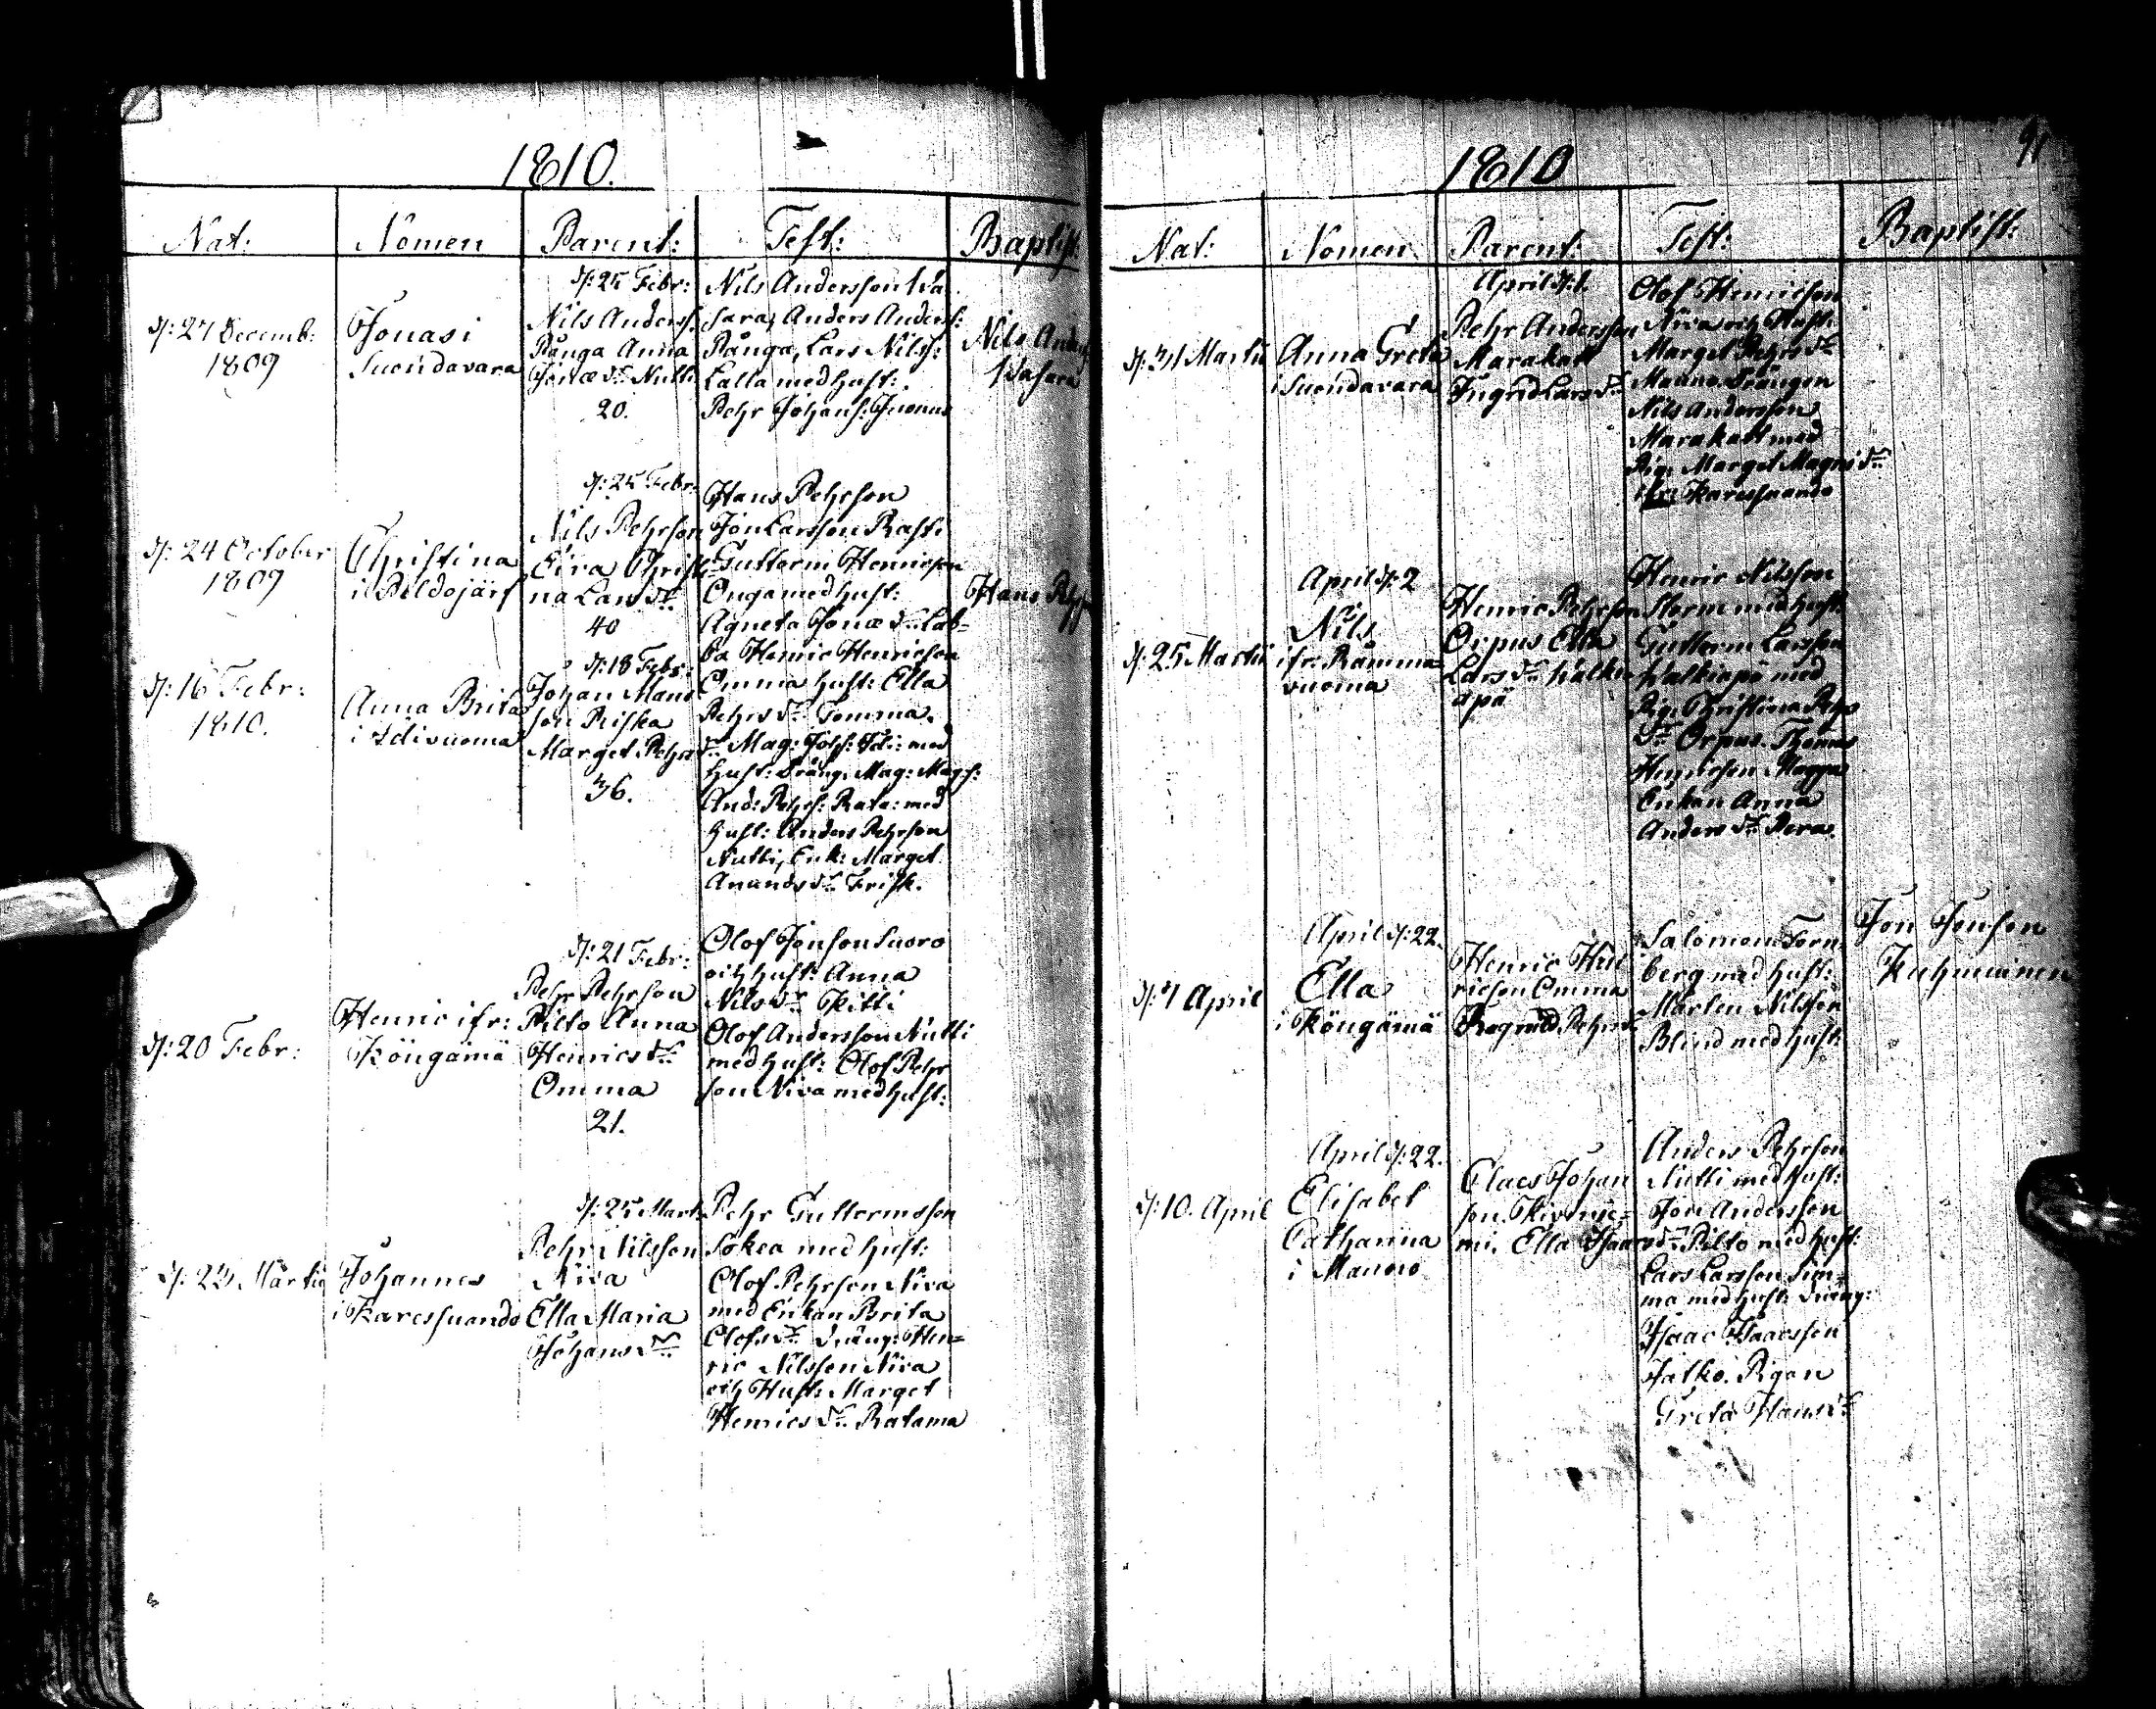 1810.
Nat: Nomen Parent: Test: Baptist:
d: 27 Decemb:
1809
Jonas i
Suondavara
d: 25 Febr:
Nils Anders:
Pånga Anna
Jonæ dr Nutti
20.
Nils Andersson Wa
sara, Anders Anders:
Pånga, Lars Nils:
Lalla med hust:
Pehr Johans: Juonus
Nils Anders
Wasara
d: 24 October
1809
Christina
i Peldojärf
d: 25 Febr:
Nils Pehrson
Eira Christi
na Lars dr
40
Hans Pehrson
Jon Larsson Rasti
Guttorm Henricson
Onga med hust:
Agneta Jonæ dr Lab=
ba Henric Henricson
Omma hust: Ella
Pehrs dr Tomma.
Hans Pehrs
d: 16 Febr:
1810.
Anna Brita
i Idivuoma
d: 18 Febr:
Johan Mans
son Riska
Marget Pehrs
dr
36.
Mag: Joh: Idi: med
hust: Dräng. Mag: Mag:s:
And: Pehrs: Rata: med
hust: Anders Pehrson
Nutti, Enk: Marget
Anunds dr Frisk.
d: 20 Febr:
Henric ifr:
Köngämä
d: 21 Febr:
Pehr Pehrson
Pilto Anna
Henrics dr
Omma
21.
Olof Jonson Suoro
och hust: Anna
Nils dr Kitti
Olof Andersson Nutti
med hust: Olof Pehr
son Niva med hust:
d: 23 Martii
Johannes
i Karessuando
d: 25 Mart:
Pehr Nilsson
Niva
Ella Maria
Johans dr
Pehr Guttormsson
Sokea med hust:
Olof Pehrson Niva
med Enkan Brita
Olofs dr Dräng: Hen=
ric Nilsson Niva
och Hust: Marget
Henrics dr Ratama
1810
91
Nat: Nomen Parent: Test: Baptist:
d: 31 Martii
Anna Greta
i Suondavara
April d: 1.
Pehr Andersson
Marakatt
Ingrid Lars dr
Olof Henricson
Niva och Hust:
Marget Pehrs dr
Mauno. Drängen
Nils Andersson
Marakatt med
Pig: Marget Magni dr
ifr: Karessuando
d: 25 Martii
April d: 2
Nils
ifr: Rämma
vuoma
Henric Pehrson
Orpus Ella
Lars dr Walkia
apä
Henric Nilsson
Storm med hust:
Guttorm Larsson
Walkiapä med
Pig. Christina Pehrs
dr Orpus. Thomas
Henricson Magga
Enkan Anna
Anders dr Pera.
d: 7 April
April d: 22.
Ella
i Köngämä
Henric Hen
ricson Omma
Ragnild Pehrs dr
Salomon Torn
berg med hust:
Morten Nilsson
Blind med hust:
Jon Jonson
Kuhmuinen
d: 10. April
April d: 22.
Elisabet
Catharina
i Mauno
Claes Johan
son. Kivinie=
mi. Ella Isaacs dr
Anders Pehrson
Nutti med hust:
Jon Andersson
Pilto med hust:
Lars Larsson Sim=
ma med hust: Dräng:
Isaac Isaacsson
Jatko. Pigan
Greta Hans dr